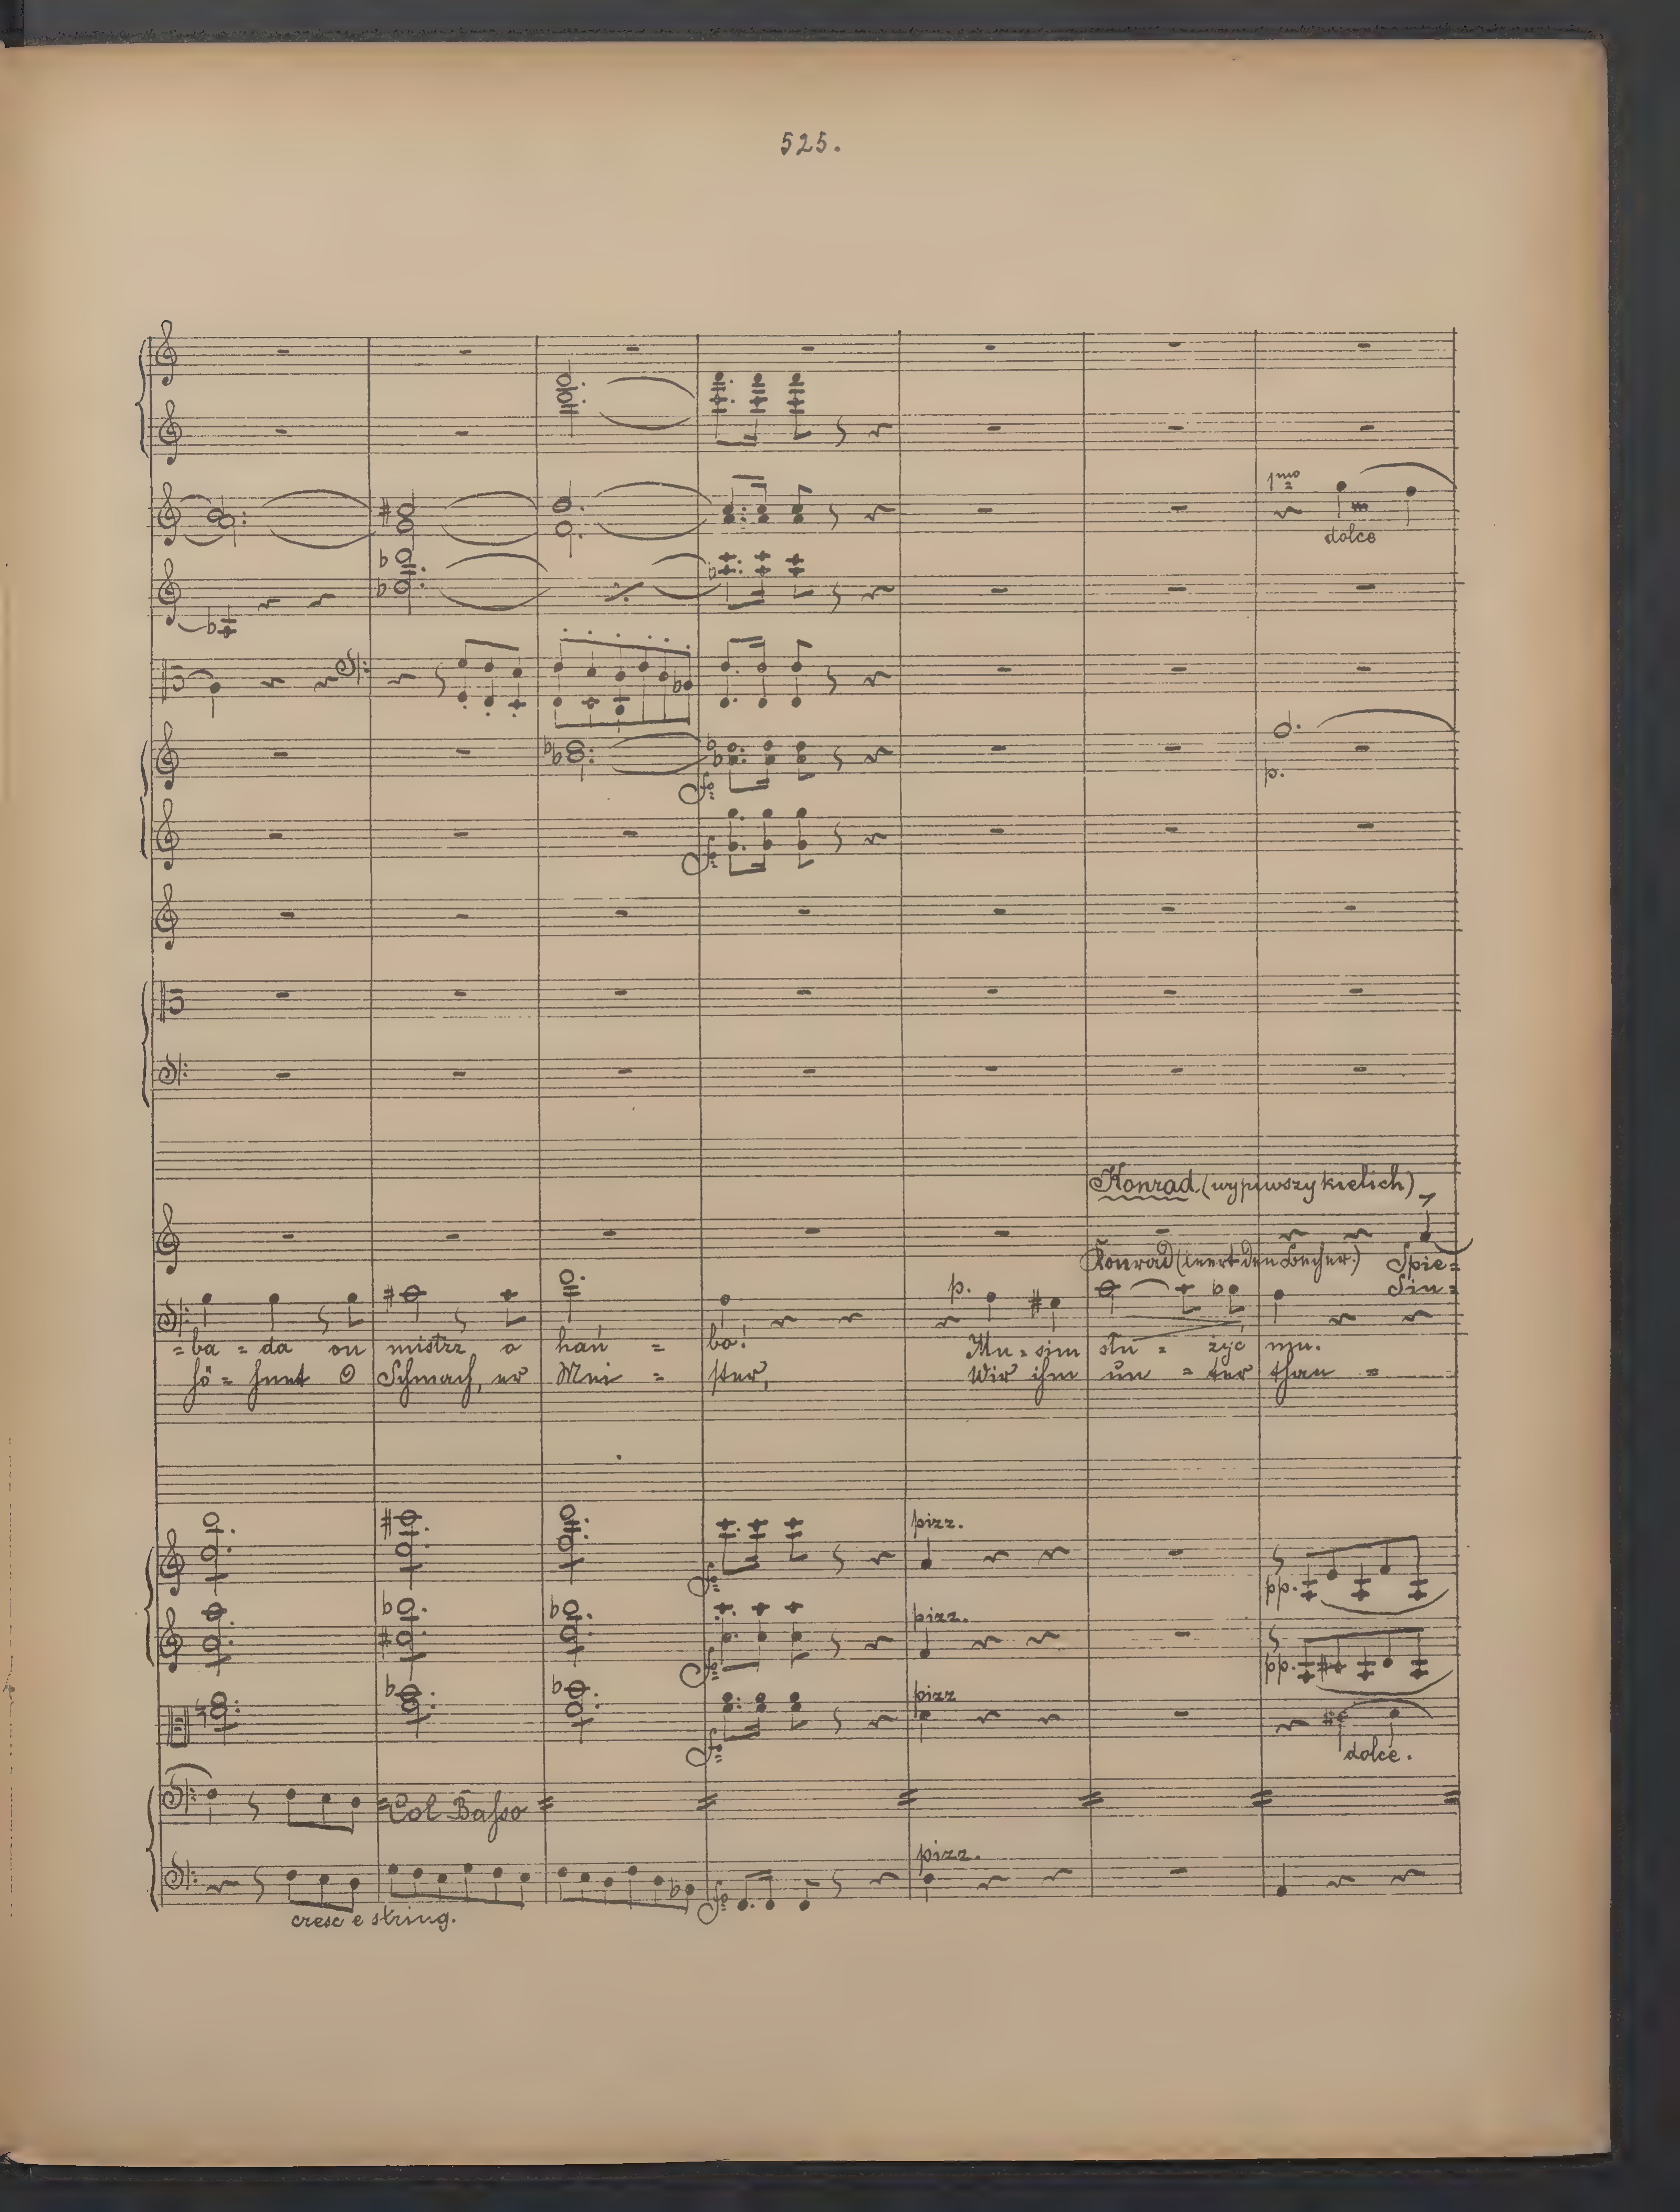 525.
1mo
dolce
p.
Konrad (wypiwszy kielich)
Konrad (leert den Becher.) Spie=
p. Sin=
=ba = da on mistrz o hań = bo! Mu = sim słu = żyć mu.
hö = hnet O Schmach, er Mei = ster, Wir ihm un = ter than =
pizz.
pp.
pizz.
pp.
pizz
dolce.
Col Basso
pizz.
cresc e string.